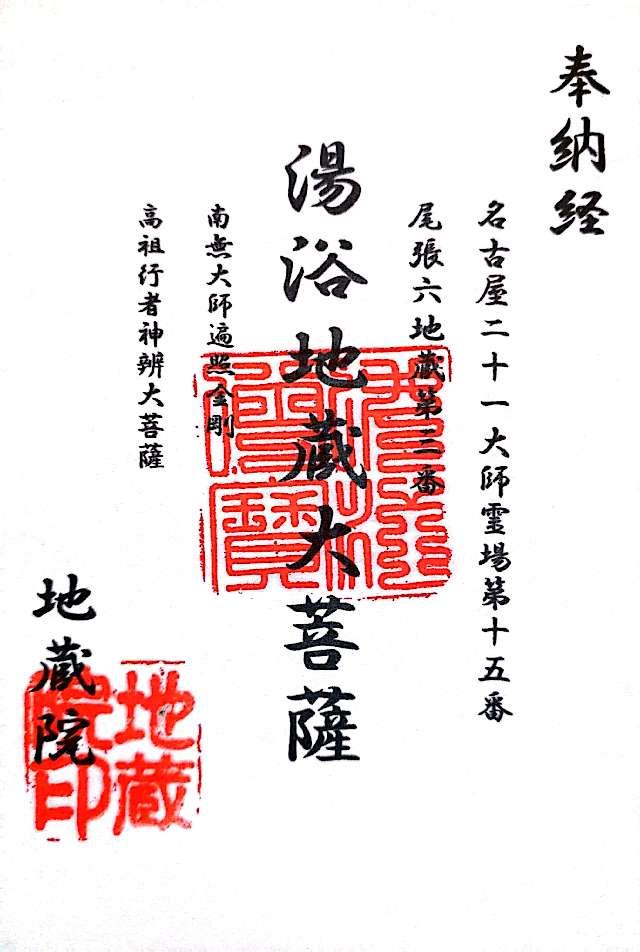 奉納経
名古屋二十一大師霊場第十五番
尾張六地蔵第二番
湯浴地蔵大菩薩
南無大師遍照金剛
高祖行者神辨大菩薩
地蔵院
地蔵
院印